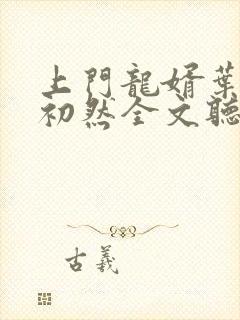 上門龍婿葉
初然全文聽
古羲